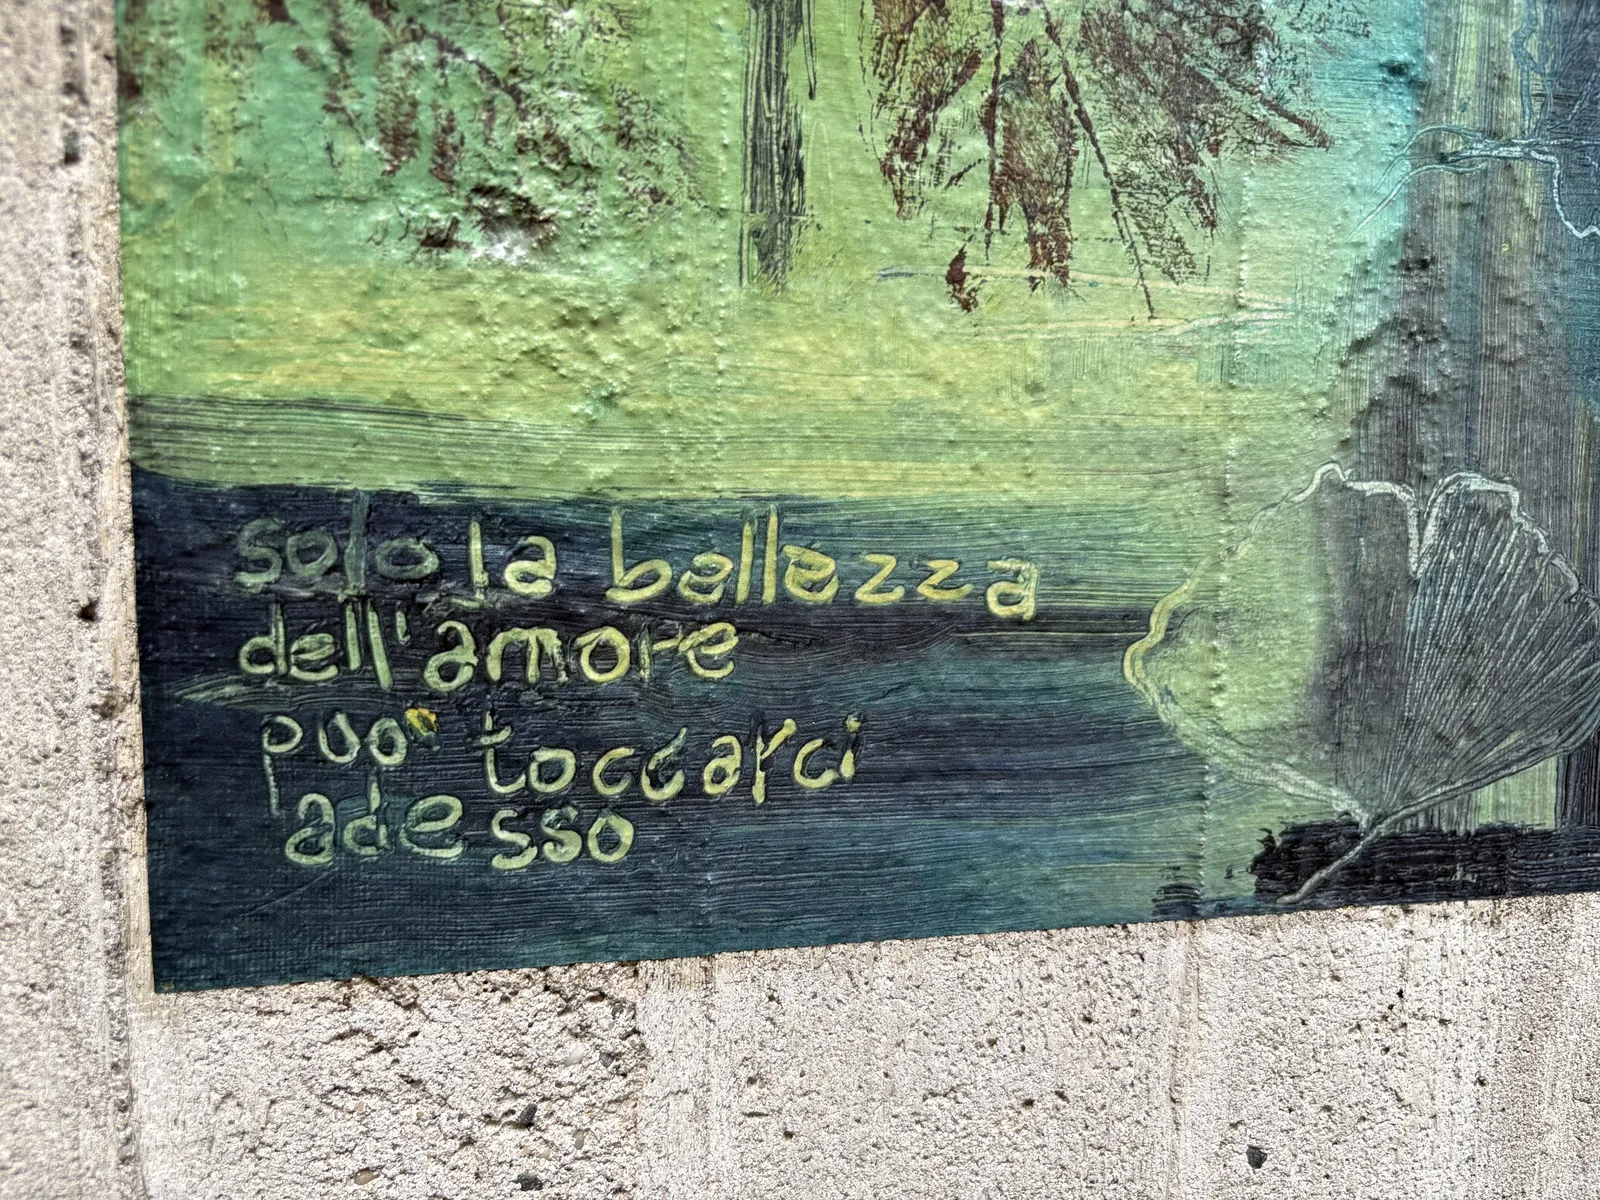 solo la bellezza
dell'amore
può toccarci
adesso